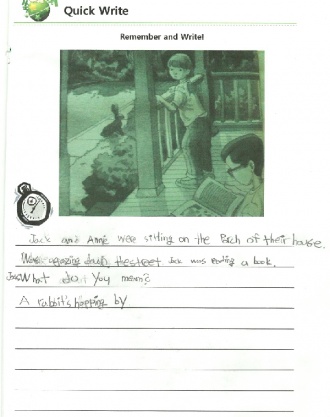 Quick Write
Remember and Write!
Jack and Annie were sitting on the Porch of their house.
down the street Jack was reading a book.
What do You mean?
A rabbit's hopping by